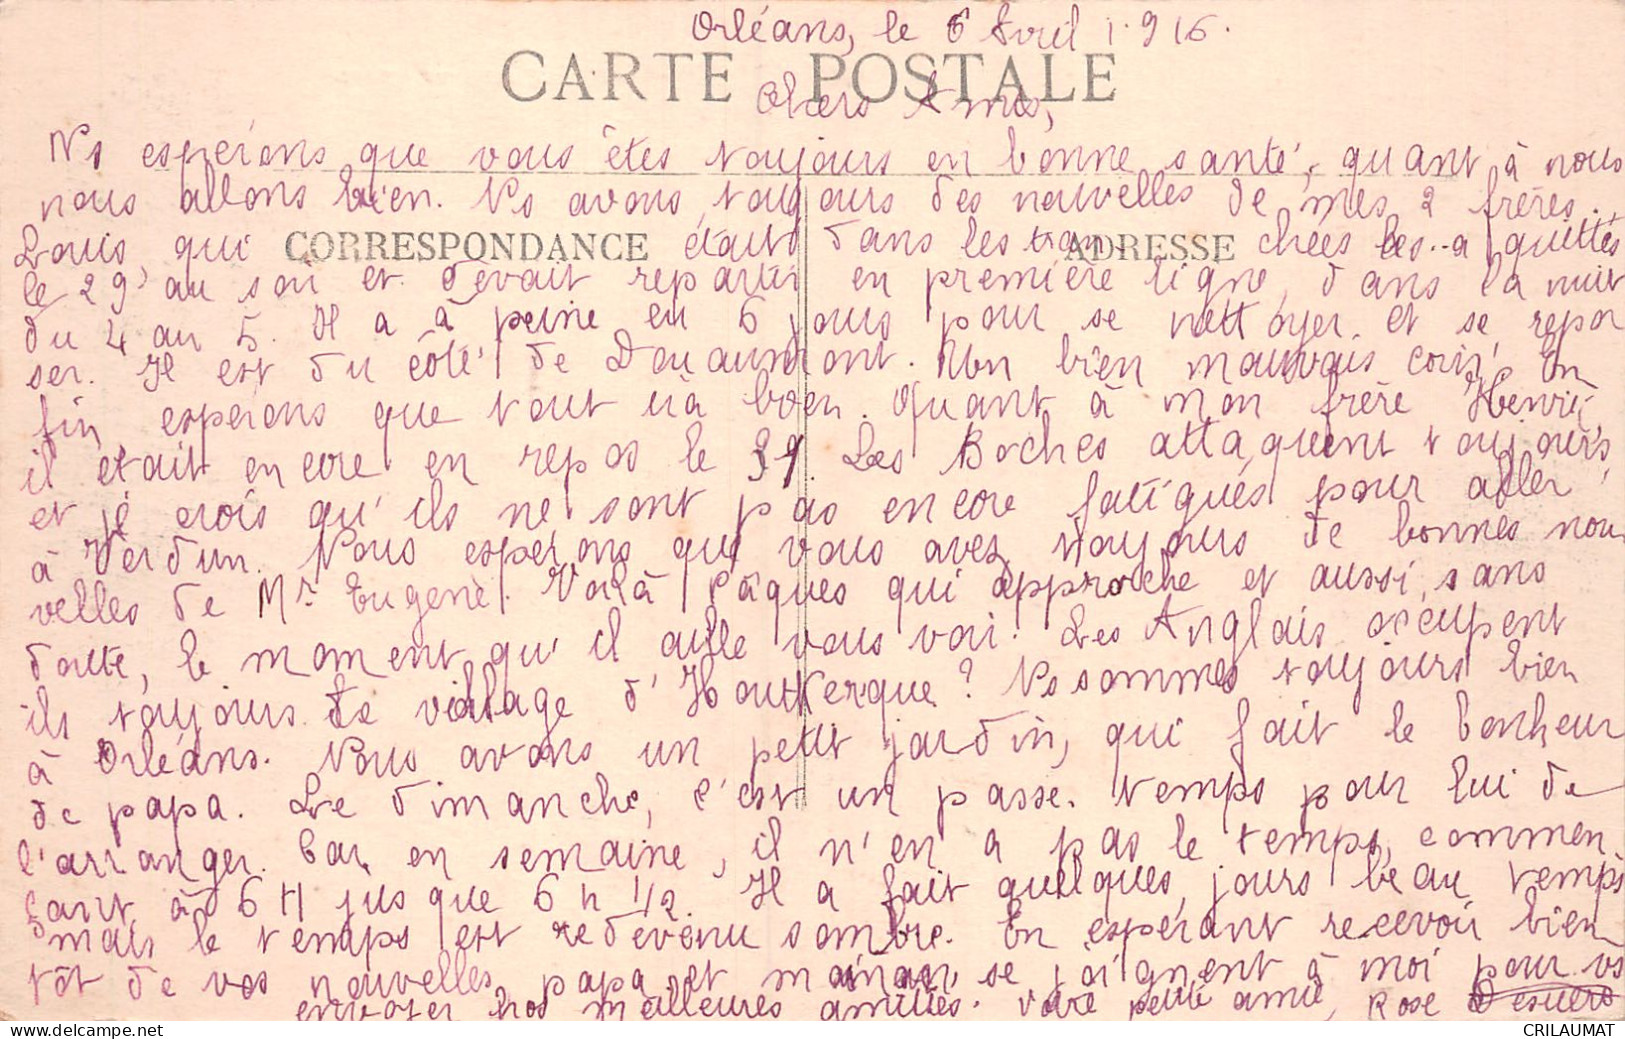 Orléans, le 6 Avril 1.916.
CARTE POSTALE
Chers Amis,
Ns espérons que vous êtes toujours en bonne santé, quant à nous
nous allons bien. Ns avons toujours des nouvelles de mes 2 frères.
CORRESPONDANCE
ADRESSE
Louis qui était dans les tranchées les a quittés
le 29 au soir et devait repartir en première ligne, dans la nuit
du 4 au 5. Il a à peine eu 6 jours pour se nettoyer et se repo
ser. Il est du côté de Douaumont. Un bien mauvais coin. En
fin espérons que tout ira bien. Quant à mon frère Henri
il était encore en repos le 31. Les Boches attaquent toujours,
et je crois qu'ils ne sont pas encore fatigués pour aller
à Verdun. Nous esperons que vous avez toujours de bonnes nou
velles de Mr Eugène. Voilà Pâques qui approche et aussi, sans
doute, le moment qu'il aille vous voir. Les Anglais occupent
ils toujours le village d'Houtkerque? Ns sommes toujours bien
à Orléans. Nous avons un petit jardin, qui fait le bonheur
de papa. Le dimanche, c'est un passe-temps pour lui de
l'arranger. Car, en semaine, il n'en a pas le temps, commen
çant à 6 H jusque 6 h 1/2. Il a fait quelques jours beau temps
mais le temps est redevenu sombre. En espérant recevoir bien
tôt de vos nouvelles, papa et maman se joignent à moi pour vs
envoyer nos meilleures amitiés. Votre petite amie, Rose
CRILAUMAT